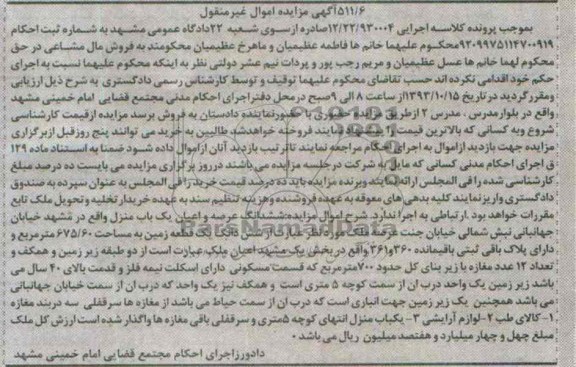 ۵۱۱/۶آگهی مزایده اموال غیرمنقول
بموجب پرونده کلاسه اجرایی ۱۲/۲۲/۹۳۰۰۰۴صادره ازسوی شعبه ۲۲دادگاه عمومی مشهد به شماره ثبت احکام
۹۲۰۹۹۷۵۱۱۴۷۰۰۹۱۹محکوم علیهما خانم ها فاطمه عظیمیان و ماهرخ عظیمیان محکومند به فروش مال مشاعی در حق
محکوم لهما خانم ها عسل عظیمیان و مریم رجب پور و پردات نیم عشر دولتی نظر به اینکه محکوم علیهما نسبت به اجرای
حکم خود اقدامی نکرده اند حسب تقاضای محکوم علیهما توقیف و توسط کارشناس رسمی دادگستری به شرح ذیل ارزیابی
ومقررگردید درتاریخ ۱۳۹۳/۱۰/۱۵از ساعت ۸ الی ۹صبح درمحل دفتراجرای احکام مدنی مجتمع قضایی امام خمینی مشهد
واقع در بلوارمدرس . مدرس ۲ ازطریق مزایده حضوری با حضورنماینده دادستان به فروش برسد مزایده ازقیمت کارشناسی
شروع وبه کسانی که بالاترین قیمت را پیشنهاد نمایند فروخته خواهدشد طالبین به خرید می توانند پنج روزقبل ازبرگزاری
مزایده جهت بازدید ازاموال به اجرای احکام مراجعه نمایند تاترتیب بازدید آنان ازاموال داده شود ضمنا به استناد ماده ۱۲۹
ق اجرای احکام مدنی کسانی که مایل به شرکت درجلسه مزایده می باشند درروز برگزاری مزایده می بایست ده درصد مبلغ
کارشناسی شده را فی المجلس ارائه نمایند وبرنده مزایده باید ده درصد قیمت خرید را فی المجلس به عنوان سپرده به صندوق
دادگستری واریزنمایند کلیه بدهی های معوقه به عهده فروشنده وهزینه تنظیم سند به عهده خریدار تخلیه و تحویل ملک تابع
مقررات خواهد بود .ارتباطی به اجرا ندارد. شرح اموال مزایده:ششدانگ عرصه و اعیان یک باب منزل واقع در مشهد خیابان
جهانبانی نبش شمالی خیابان جنت قطعه زمین به مساحت ۶۷۵/۶۰ مترمربع و
دارای پلاک باقی ثبتی باقیمانده ۳۶۰و۳۶۱ واقع در بخش یک مشهد اعیان ملک عبارت است از دو طبقه زیر زمین و همکف و
تعداد ۱۲ عدد مغازه با زیر پنای کل حدود ۷۰۰مترمربع که قسمت مسکونی دارای اسکلت نیمه فلز و قدمت بالای ۴۰ سال می
باشد زیر زمین یک واحد درب ان از سمت کوچه ۵ متری است و همکف نیز یک واحد که درب ان از سمت خیابان جهانبانی
می باشد همچنین یک زیر زمین جهت انباری است که درب ان از سمت حیاط می باشد از مغازه ها سرقفلی سه دربند مغازه
۱-کالای طب ۲-لوازم آرایشی ۳-یکباب منزل انتهای کوچه ۵متری و سرقفلی باقی مغازه ها واگذار شده است ارزش کل ملک
مبلغ چهل و چهار میلیارد و هفتصد میلیون ریال می باشد.
دادورزاجرای احکام مجتمع قضایی امام خمینی مشهد